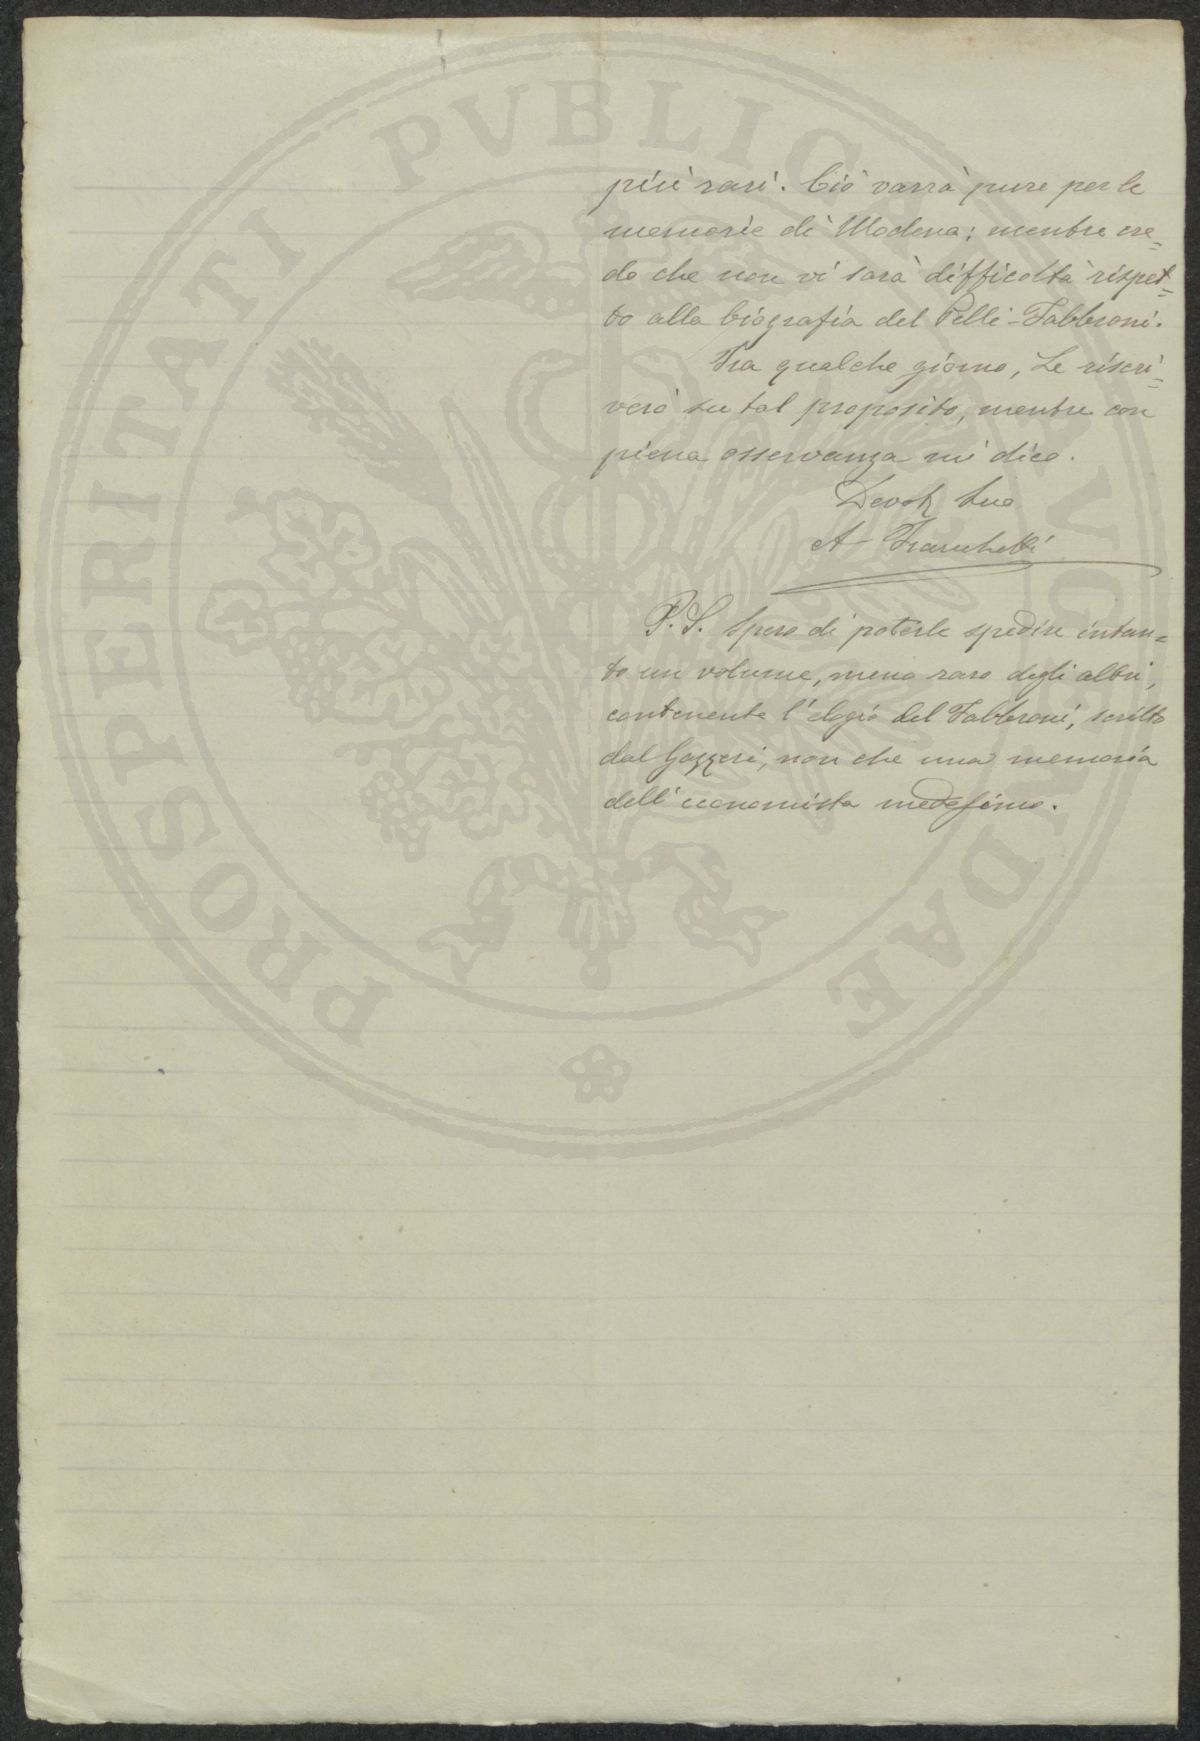 PROSPERITATI PVBLICAE AVGENDAE
più rari. Ciò varrà pure per le
memorie di Modena; mentre cre=
do che non vi sarà difficoltà rispet=
to alla biografia del Pelli-Fabbroni.
Fra qualche giorno, Le riscri=
verò su tal proposito, mentre con
piena osservanza mi dico.
Devot. Suo
A Franchetti
P.S. Spero di poterle spedire intan=
to un volume, meno raro degli altri,
contenente l'elogio del Fabbroni, scritto
dal Gazzeri, non che una memoria
dell'economista medesimo.